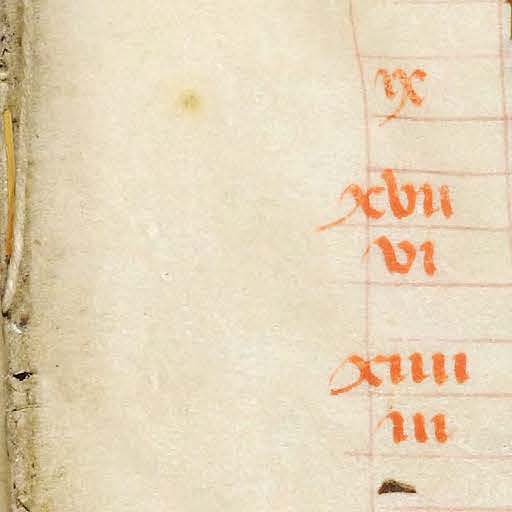 ix
xvii
vi
xiiii
iii